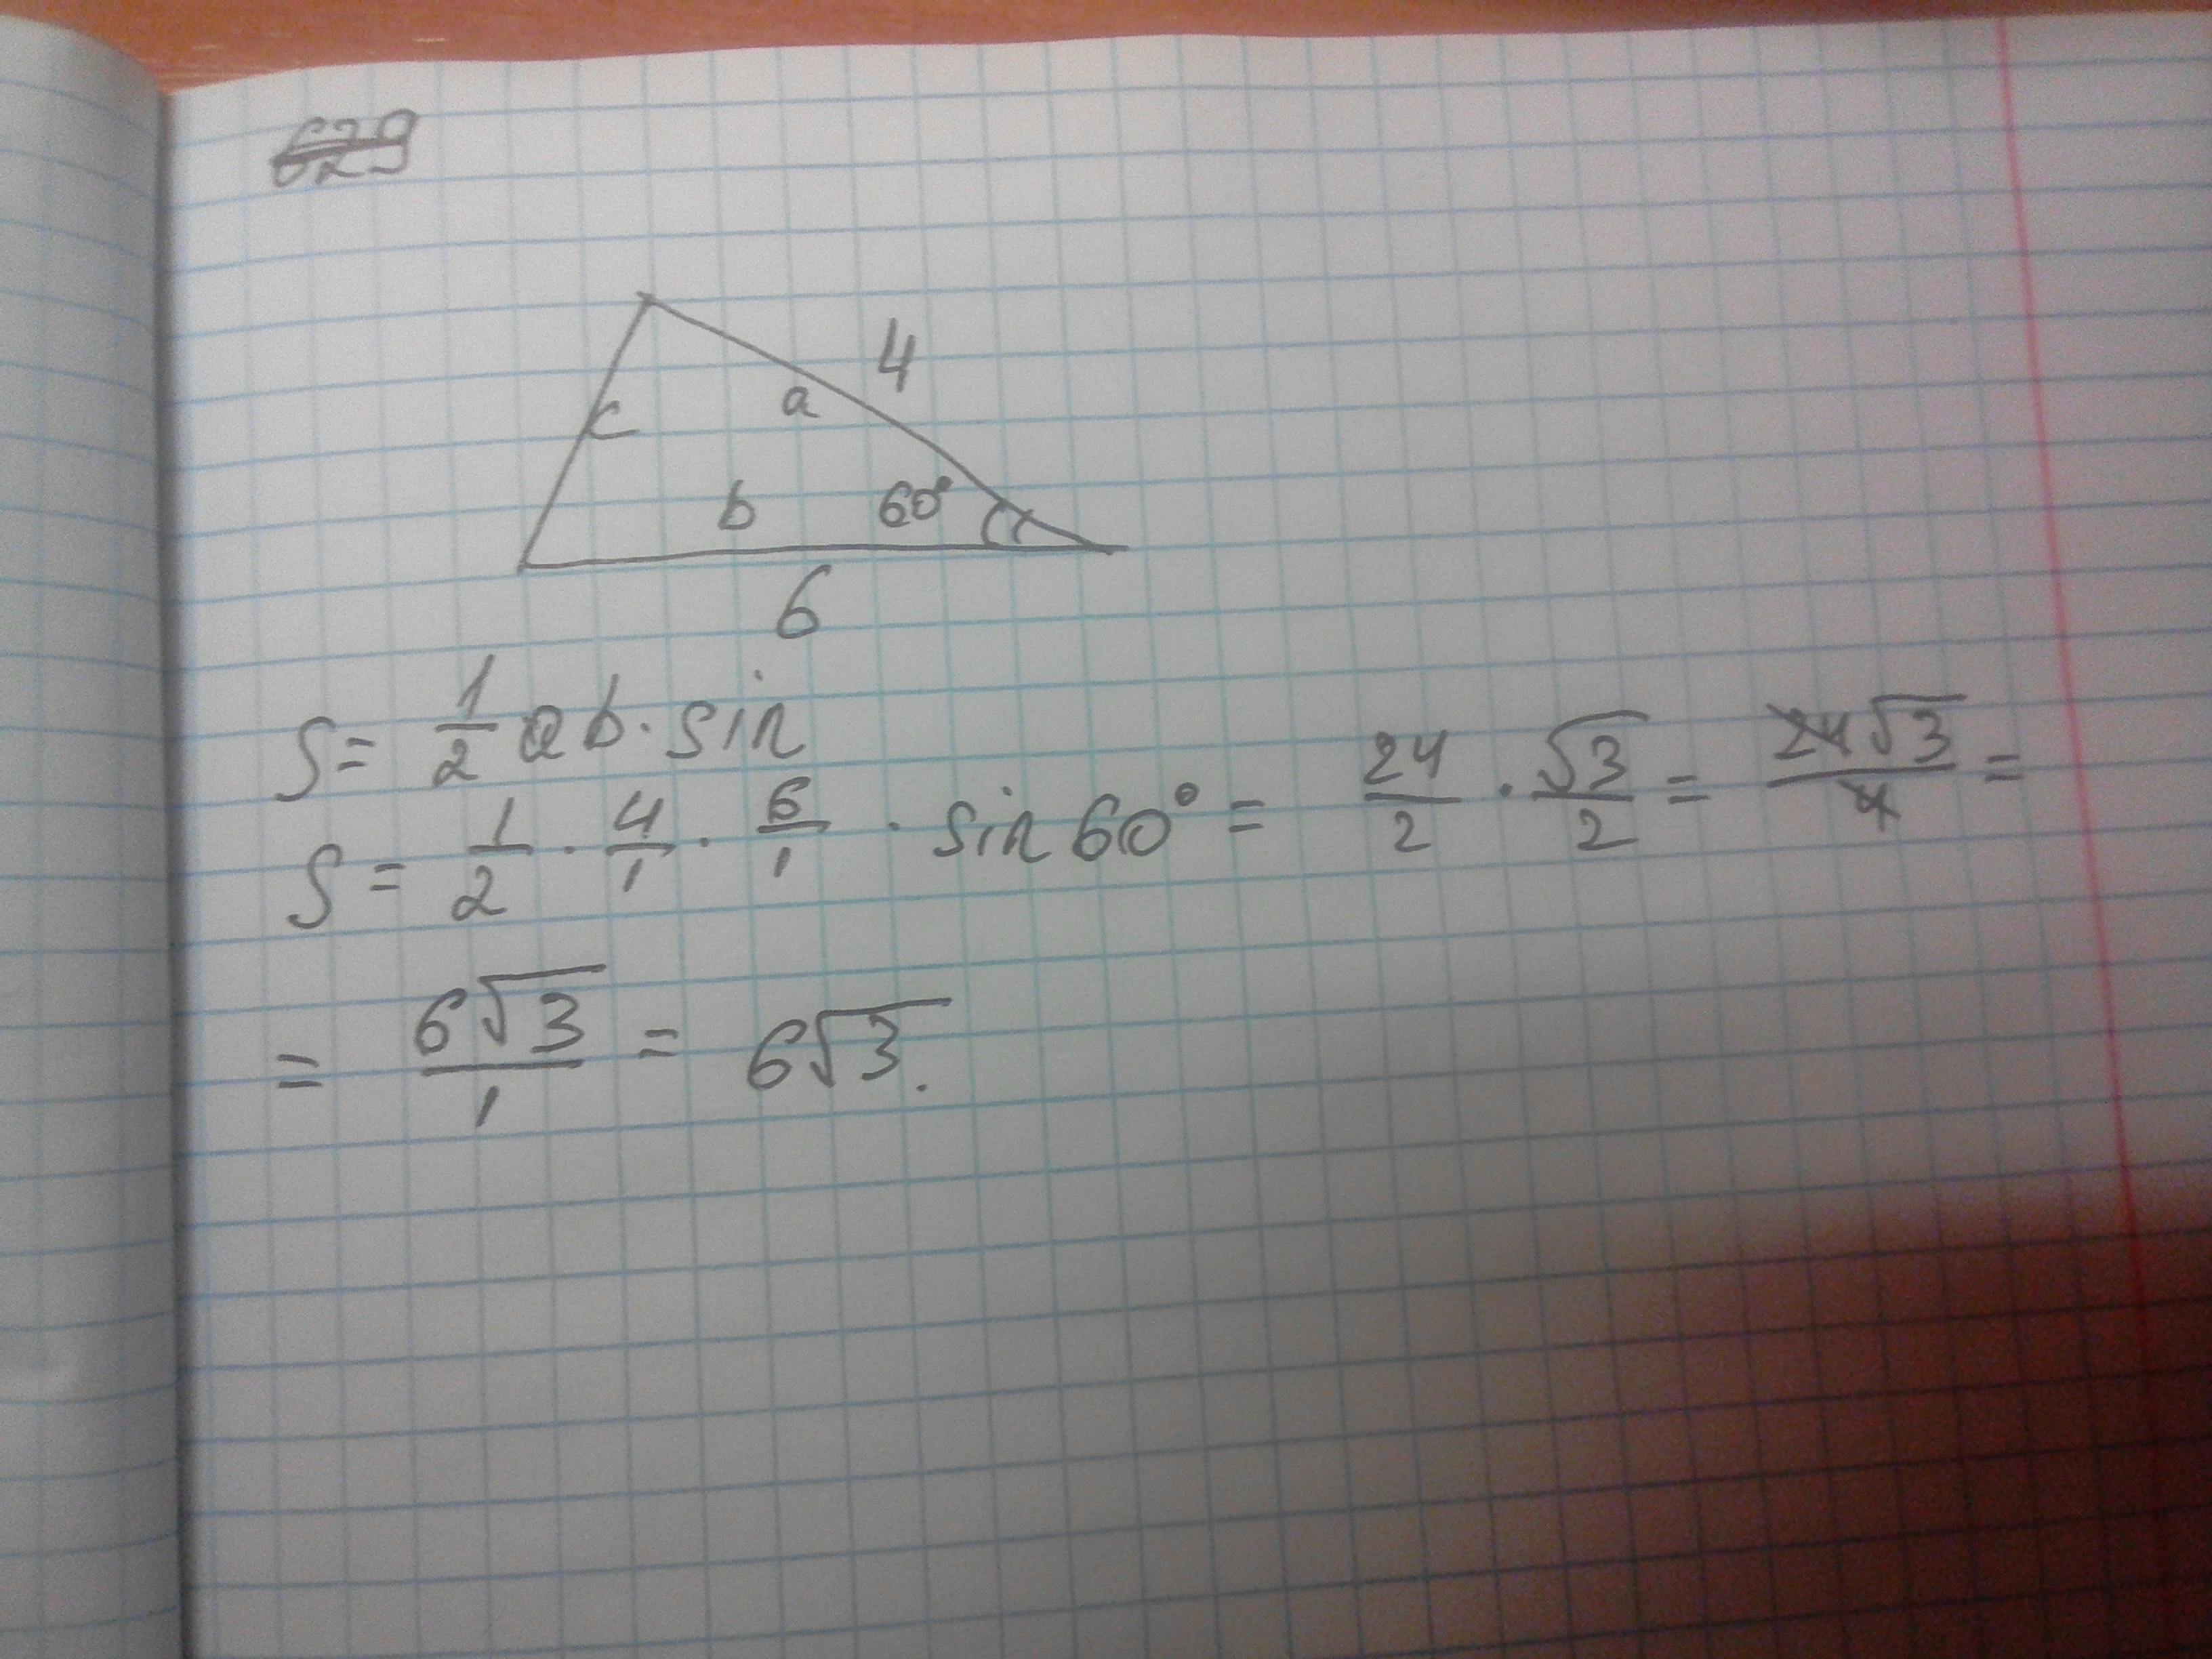 629
4
c a
b 60°
6
S = 1/2 ab · sin
S = 1/2 · 4/1 · 6/1 · sin 60° = 24/2 · √3/2 = 24√3/4 =
= 6√3/1 = 6√3.